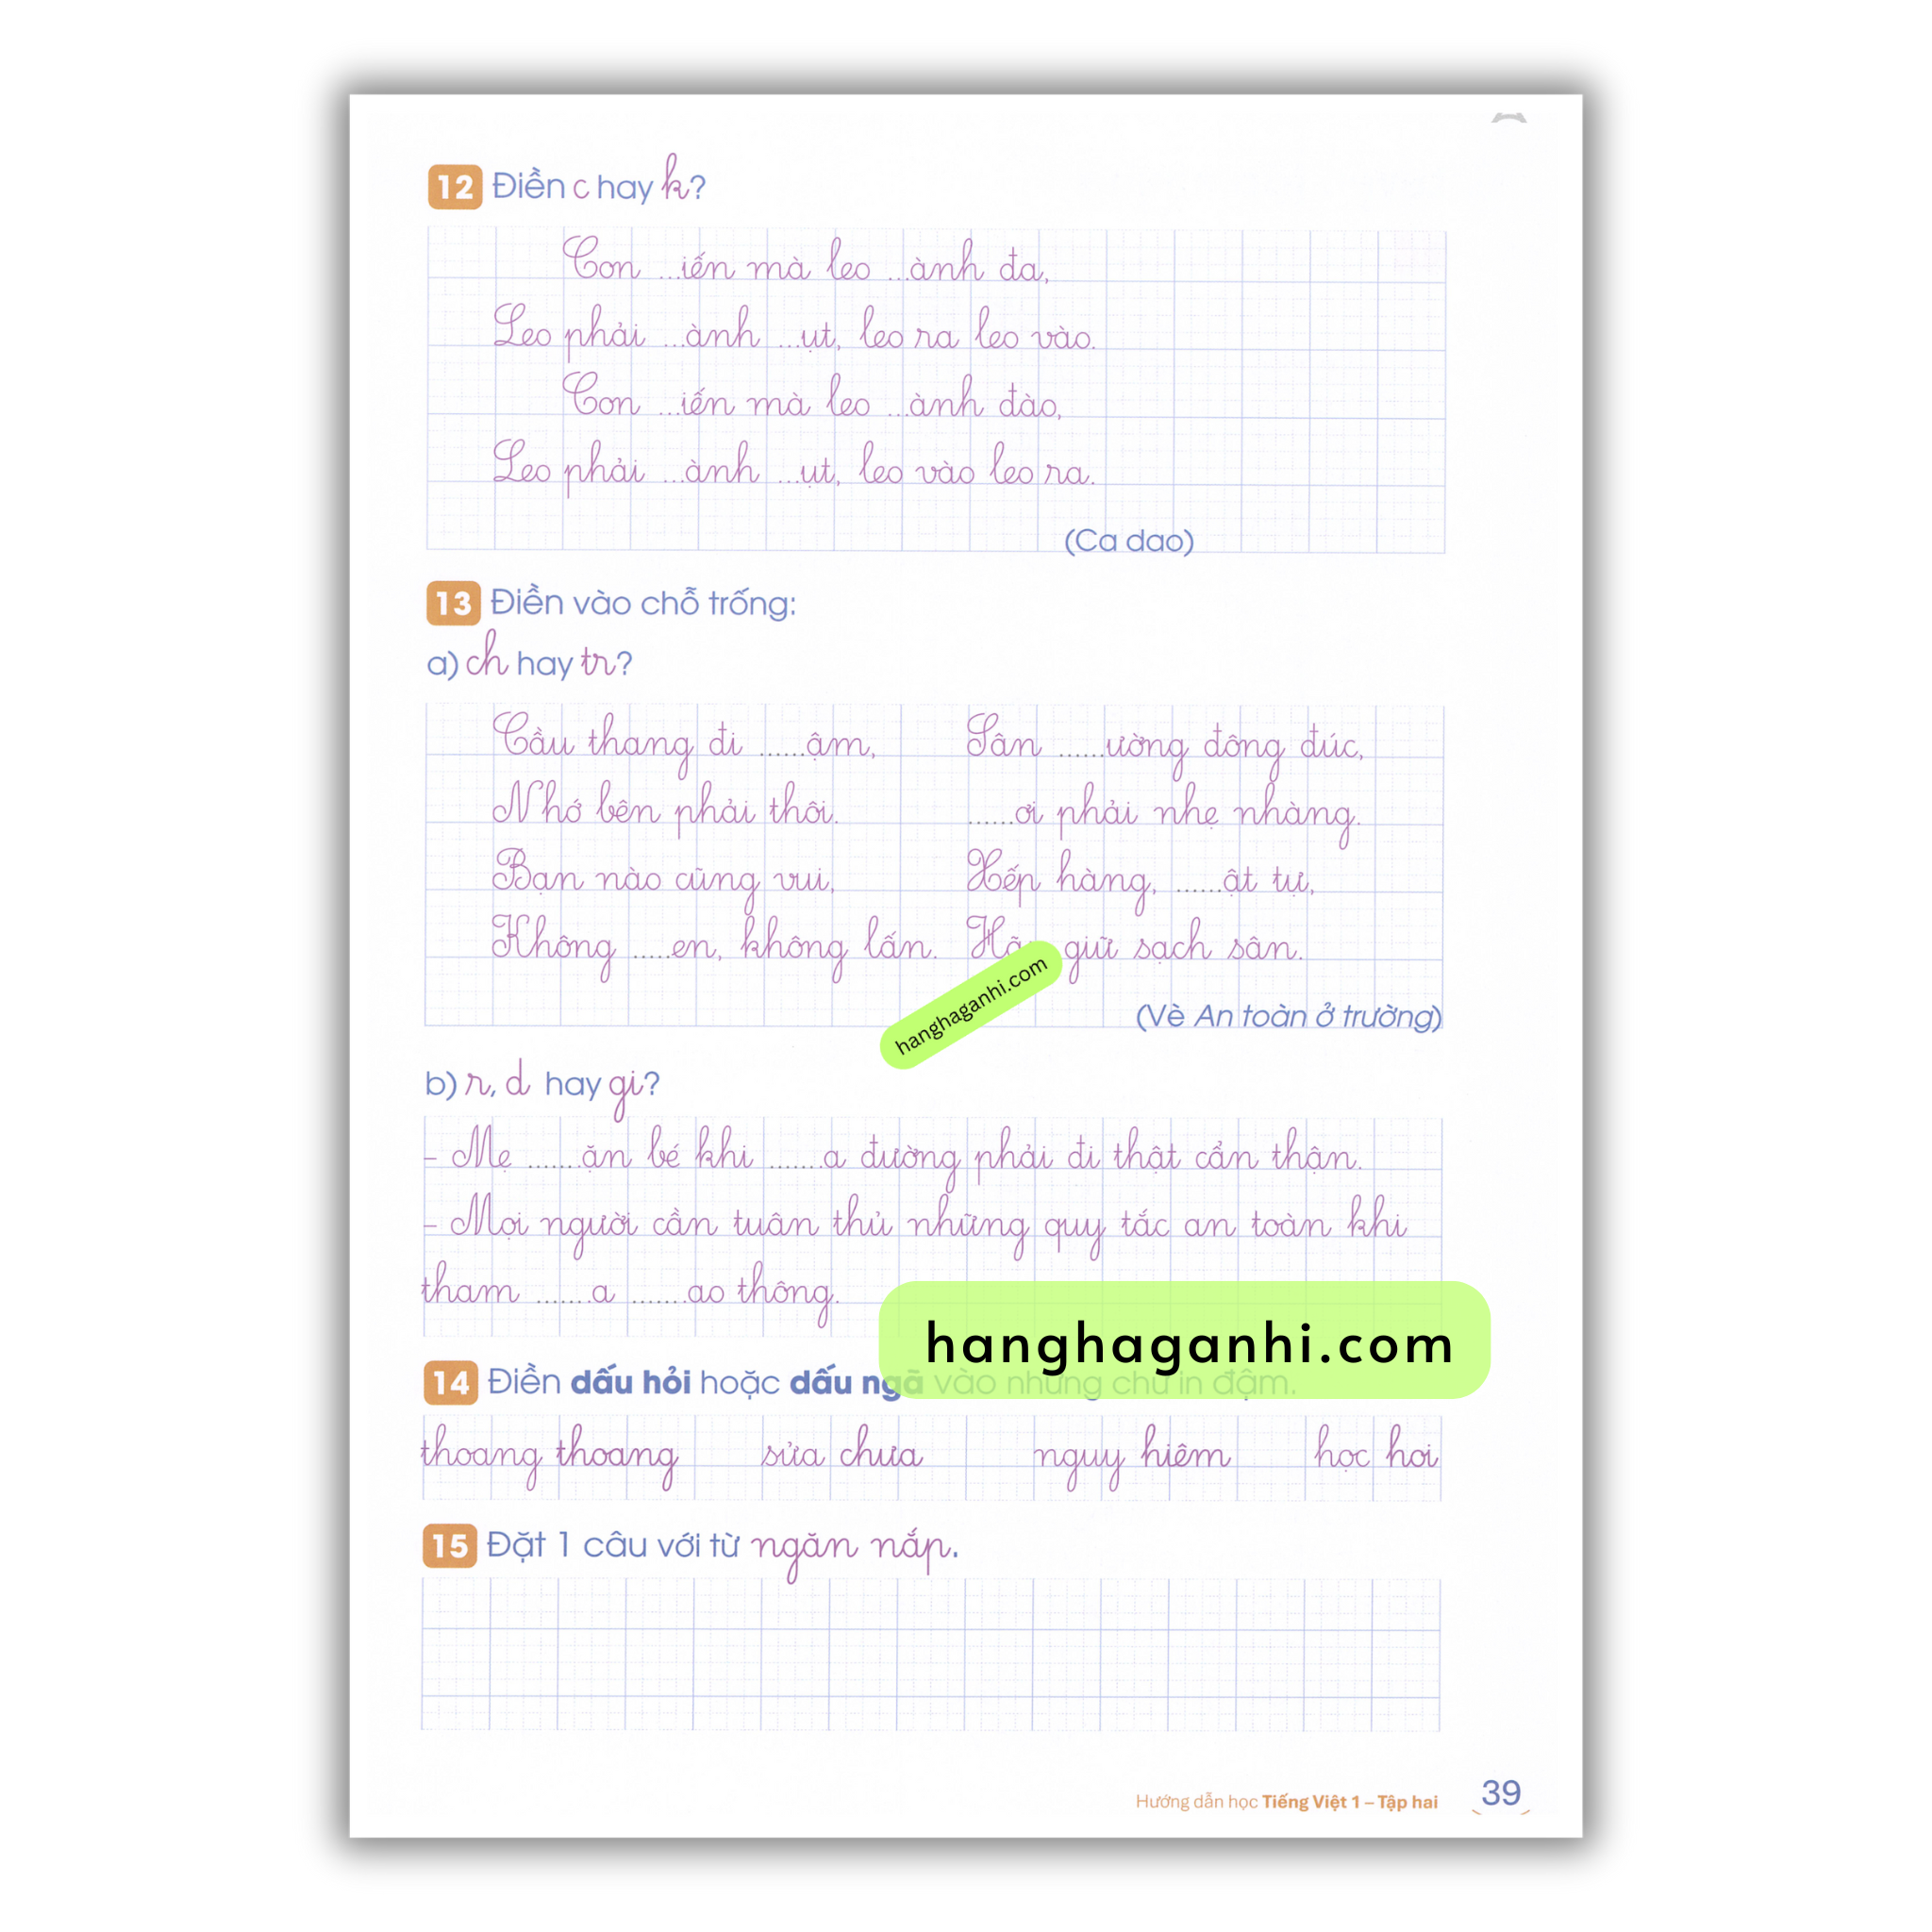 12 Điền c hay k?
Con ...iến mà leo ...ành đa,
Leo phải ...ành ...ụt, leo ra leo vào.
Con ...iến mà leo ...ành đào,
Leo phải ...ành ...ụt, leo vào leo ra.
(Ca dao)
13 Điền vào chỗ trống:
a) ch hay tr?
Cầu thang đi ......ậm,
Nhớ bên phải thôi.
Bạn nào cũng vui,
Không .....en, không lấn.
Sân ......ường đông đúc,
......ơi phải nhẹ nhàng.
Xếp hàng, ......ật tự,
giữ sạch sân.
hanghaganhi.com
(Vè An toàn ở trường)
b) r, d hay gi?
– Mẹ .......ặn bé khi .......a đường phải đi thật cẩn thận.
– Mọi người cần tuân thủ những quy tắc an toàn khi
tham .......a .......ao thông.
hanghaganhi.com
14 Điền dấu hỏi hoặc dấu ngã vào những chữ in đậm.
thoang thoang sửa chưa nguy hiêm học hoi
15 Đặt 1 câu với từ ngăn nắp.
Hướng dẫn học Tiếng Việt 1 – Tập hai 39